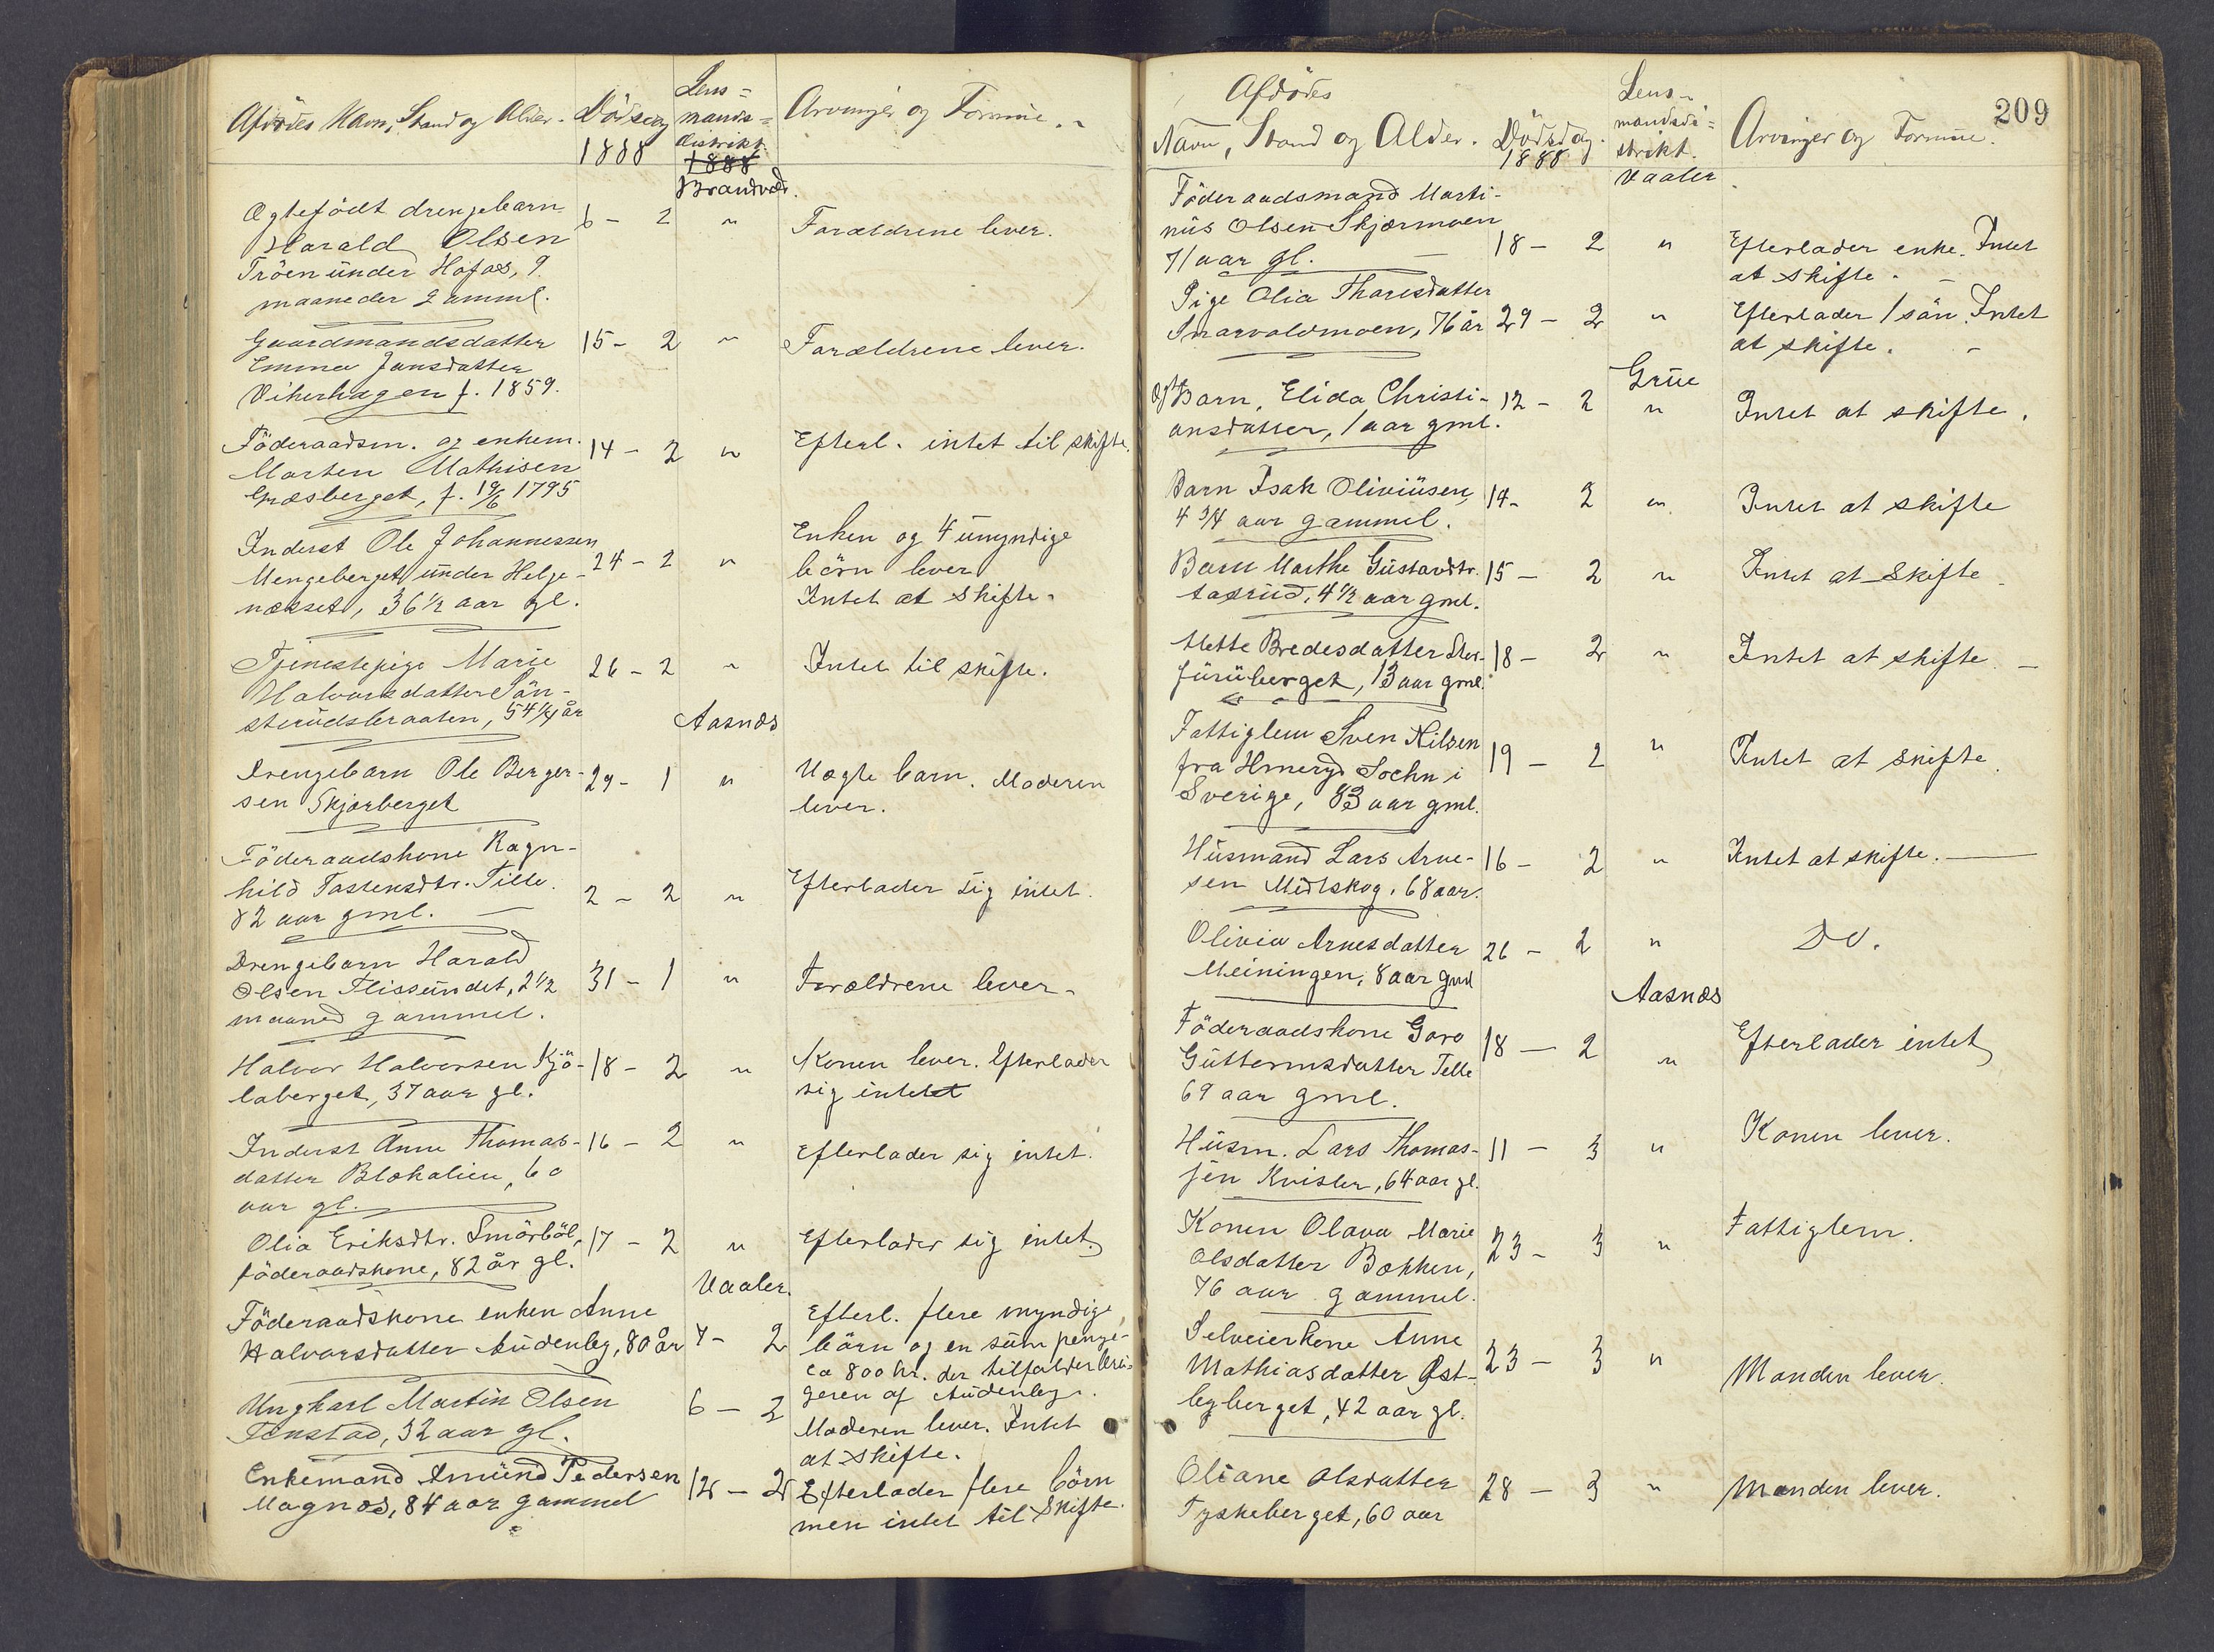 Afdødes Navn, Stand og Alder.
Dödsdag
1888
Lens=
mands=
distrikt.
1888
Brandvold.
Arvinger og Formue.
Ægtefödt drengebarn
Harald Olsen
Tröen under Hofos, 9
maaneder gamml.
6 - 2 "
Forældrene lever.
Gaardmandsdatter
Emma Jansdatter
Vikerhagen f. 1859.
15 - 2 "
Forældrene lever.
Föderaadsm. og enkem.
Morten Mathisen
Græsberget, f. 19/6 1795
14 - 2 "
Efterl. intet til skifte.
Inderst Ole Johannessen
Mengeberget under Helge-
næsset, 36 1/2 aar gl.
24 - 2 "
Enken og 4 umyndige
börn lever
Intet at skifte.
Tjenestepige Marie
Halvorsdatter Sön-
sterudsbraaten, 54 1/4 år
26 - 2 "
Intet til skifte.
Aasnæs
Drengebarn Ole Berger-
sen Skjærberget
29 - 1 "
Uægte barn. Moderen
lever.
Föderaadskone Ragn-
hild Tostensdtr. Tille.
82 aar gml.
2 - 2 "
Efterlader sig intet.
Drengebarn Harald
Olsen Flissundet, 2 1/2
maaned gammel.
31 - 1 "
Forældrene lever.
Halvor Halvorsen Kjö-
laberget, 37 aar gl.
18 - 2 "
Konen lever. Efterlader
sig intet
Inderst Anne Thomas-
datter Blokalien, 60
aar gl.
16 - 2 "
Efterlader sig intet.
Olia Eriksdtr. Smörböl,
föderaadskone, 82 år gl.
17 - 2 "
Efterlader sig intet.
Vaaler.
Föderaadskone enken Anne
Halvorsdatter Audenby, 80 år
7 - 2
Efterl. flere myndige
börn og en sum penge-
ca 800 kr. der tilfalder bru-
geren af Audenby.
Ungkarl Martin Olsen
Tenstad, 32 aar gl.
6 - 2
Moderen lever. Intet
at skifte.
Enkemand Amund Pedersen
Magnos, 84 aar gammel
12 - 2
Efterlader flere börn
men intet til skifte.
209
Afdödes
Navn, Stand og Alder.
Dödsdag.
1888
Lens-
mandsdi=
strikt.
Vaaler
Arvinger og Formue.
Föderaadsmand Marti-
nus Olsen Skjærmoen
71 aar gl.
18 - 2 "
Efterlader enke. Intet
at skifte.
Pige Olia Tharesdatter
Snarvoldmoen, 76 år
29 - 2 "
Efterlader 1 sön. Intet
at skifte.
Grue
Barn, Elida Christi-
ansdatter, 1 aar gml.
12 - 2 "
Intet at skifte.
Barn Isak Oliviusen,
4 3/4 aar gammel.
14 - 2 "
Intet at skifte
Barn Marthe Gustavdtr.
Aasrud, 4 1/2 aar gml.
15 - 2 "
Intet at skifte
Mette Bredesdatter Stor-
furuberget, 13 aar gml.
18 - 2 "
Intet at skifte.
Fattiglem Sven Nilsen
fra Hmeryd Sochn i
Sverige, 83 aar gml.
19 - 2 "
Intet at skifte.
Husmand Lars Arne-
sen Midtskog. 68 aar.
16 - 2 "
Intet at skifte.
Olivia Arnesdatter
Meiningen, 8 aar gml
26 - 2 "
Do.
Aasnæs
Föderaadskone Goro
Guttormsdatter Telle
69 aar gml.
18 - 2 "
Efterlader intet
Husm. Lars Thomas-
sen Kvisler, 64 aar gl.
11 - 3 "
Konen lever.
Konen Olava Marie
Olsdatter Bækken,
76 aar gammel.
23 - 3 "
Fattiglem.
Selveierkone Anne
Mathiasdatter Øst-
byberget, 42 aar gl.
23 - 3 "
Manden lever.
Oliane Olsdatter
Tyskeberget, 60 aar
28 - 3 "
Manden lever.